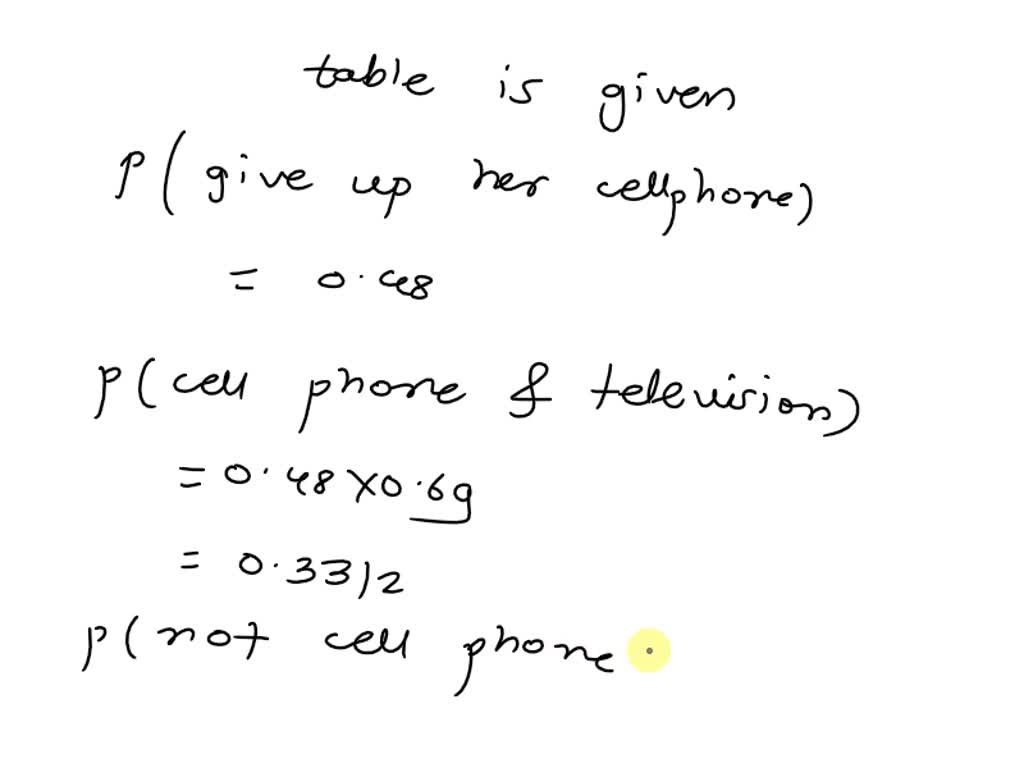 table is given
P( give up her cellphone)
= 0.48
P( cell phone & television)
= 0.48 X0.69
= 0.3312
P( not cell phone